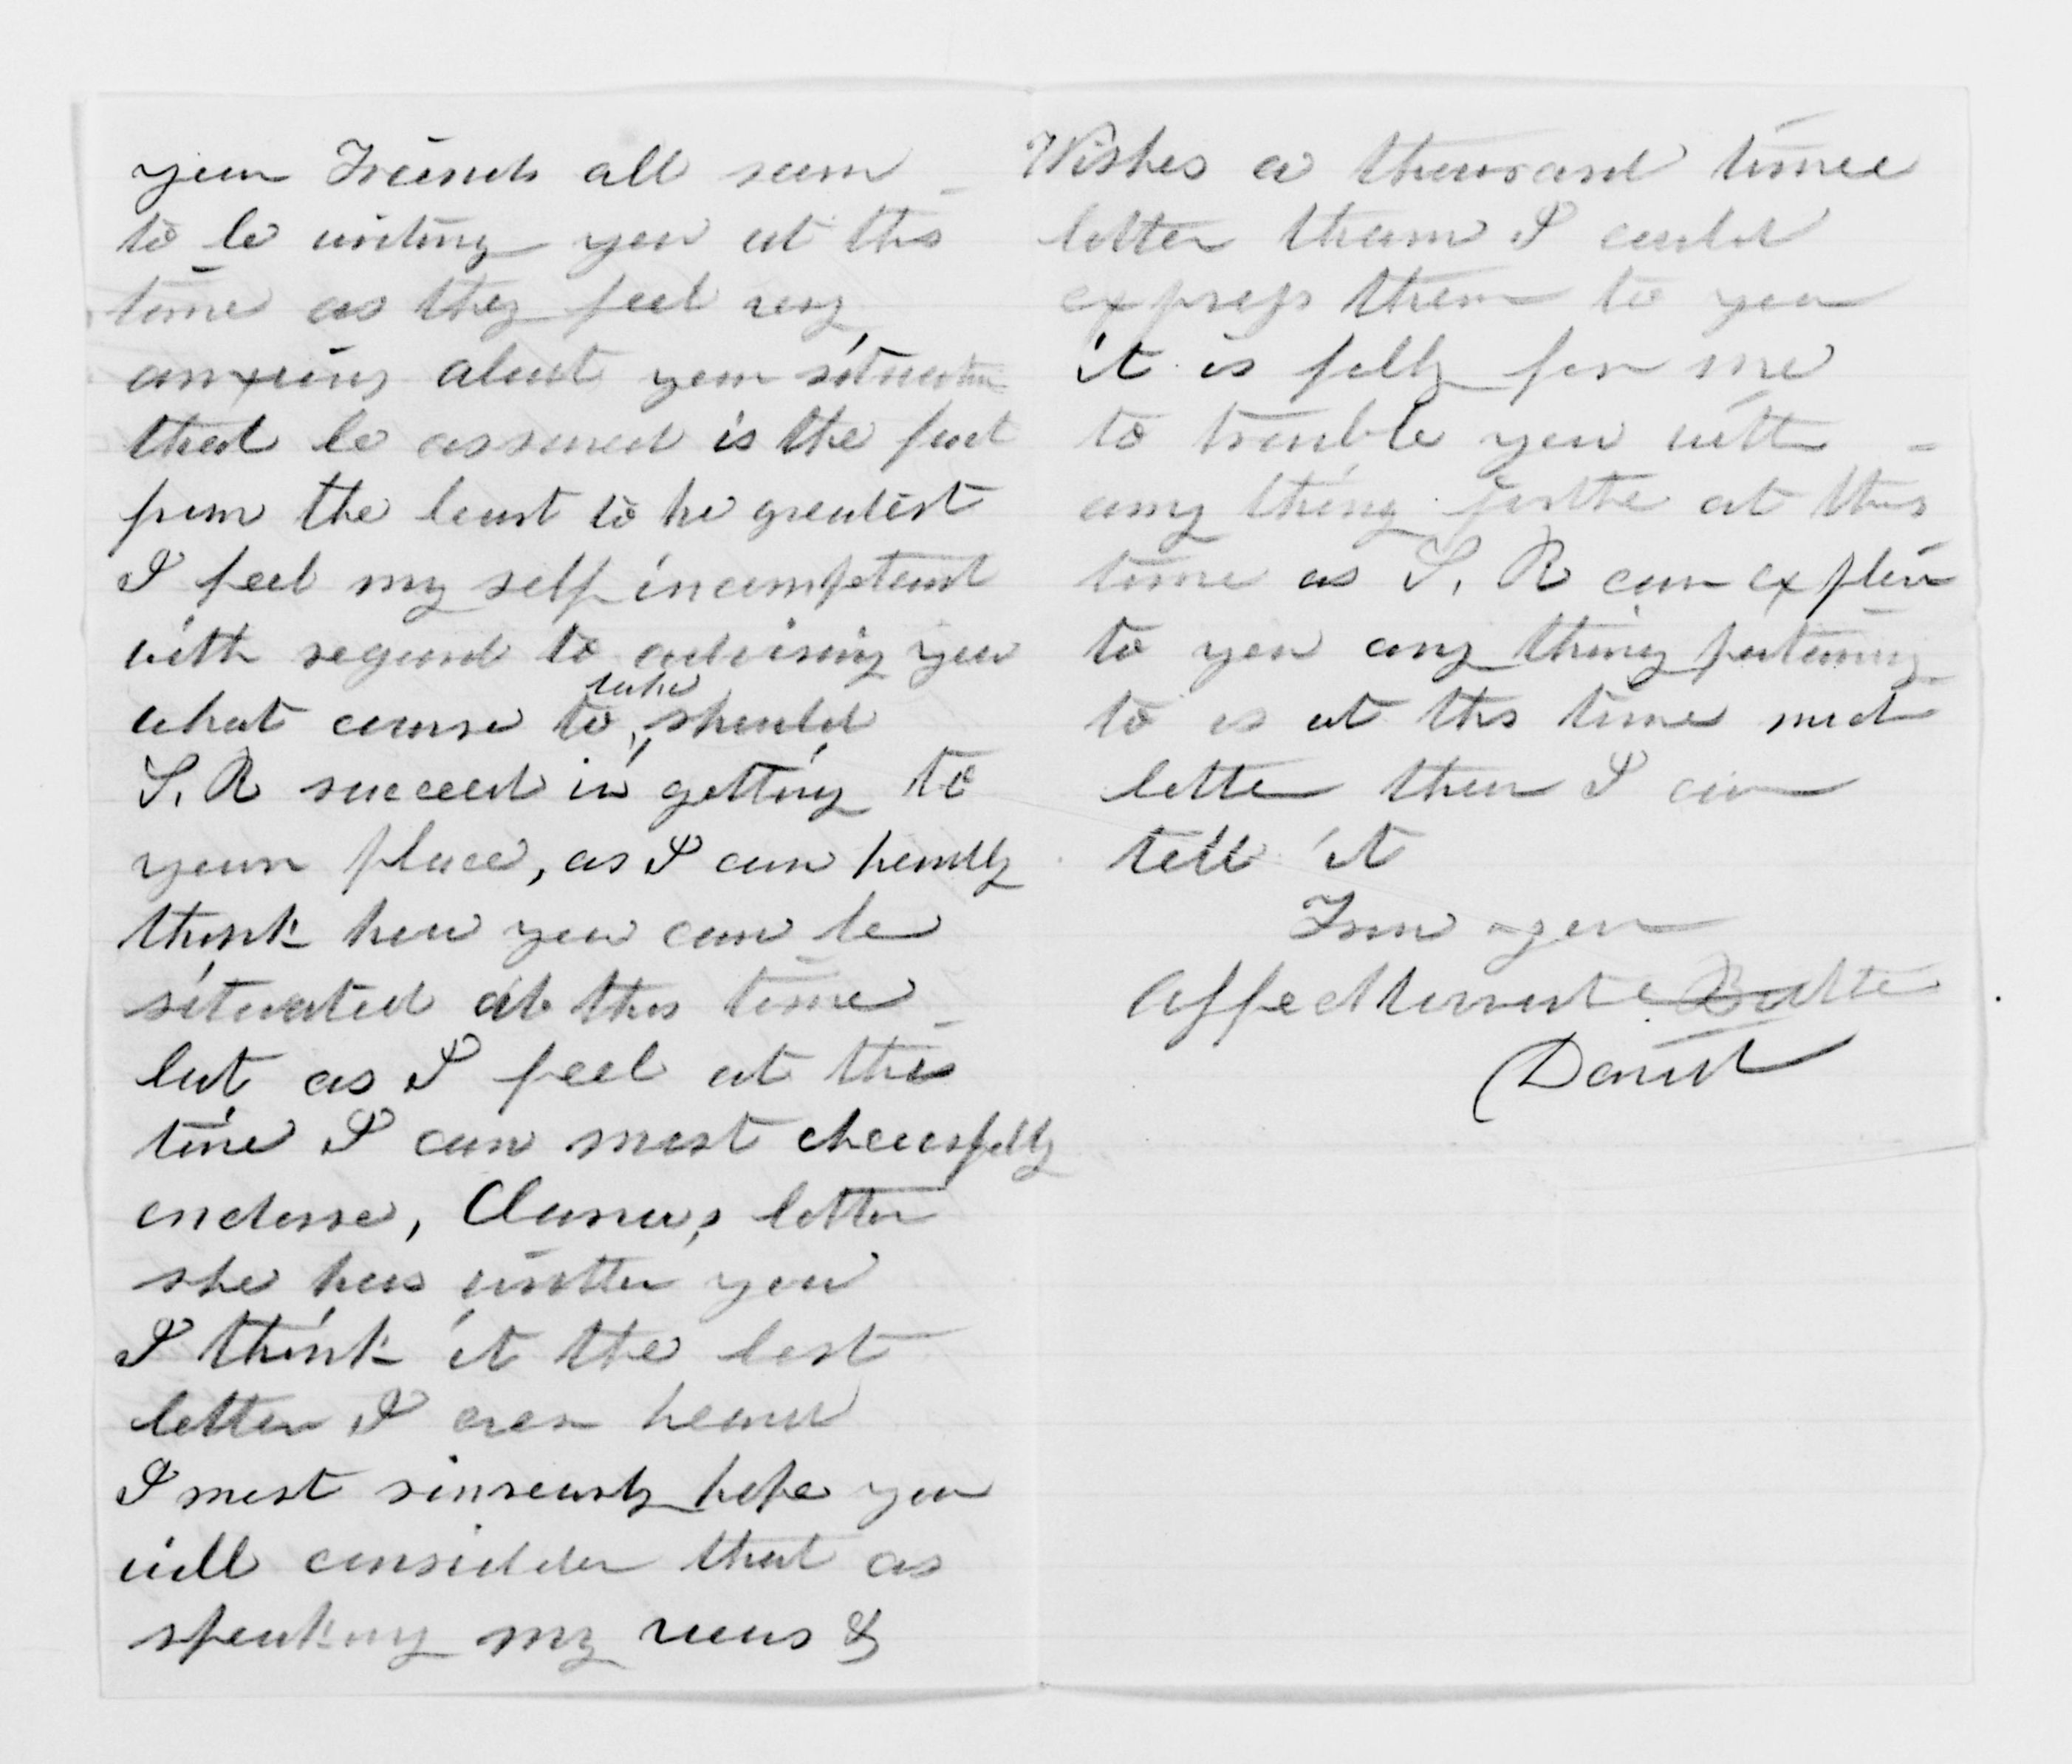 your Friends all seem
to be writing you at this
time as they feel very
anxious about your situation
that be assured is the fact
from the least to he greatest
I feel my self incompetent
with regard to advising you
what course to take should
S. R succeed in getting to
your place, as I can hardly
think how you can be
situated at this time
but as I feel at this
time I can most cheerfully
endorse, Clanas, letter
she has written you
I think it the best
letter I ever heard
I most sinsearly hope you
will considder that as
speaking my views &
Wishes a thousand times
better than I could
express them to you
it is folly for me
to trouble you with
any thing further at this
time as S. R can explain
to you any thing pertaining
to us at this time much
better then I can
tell it
From your
Affectionate